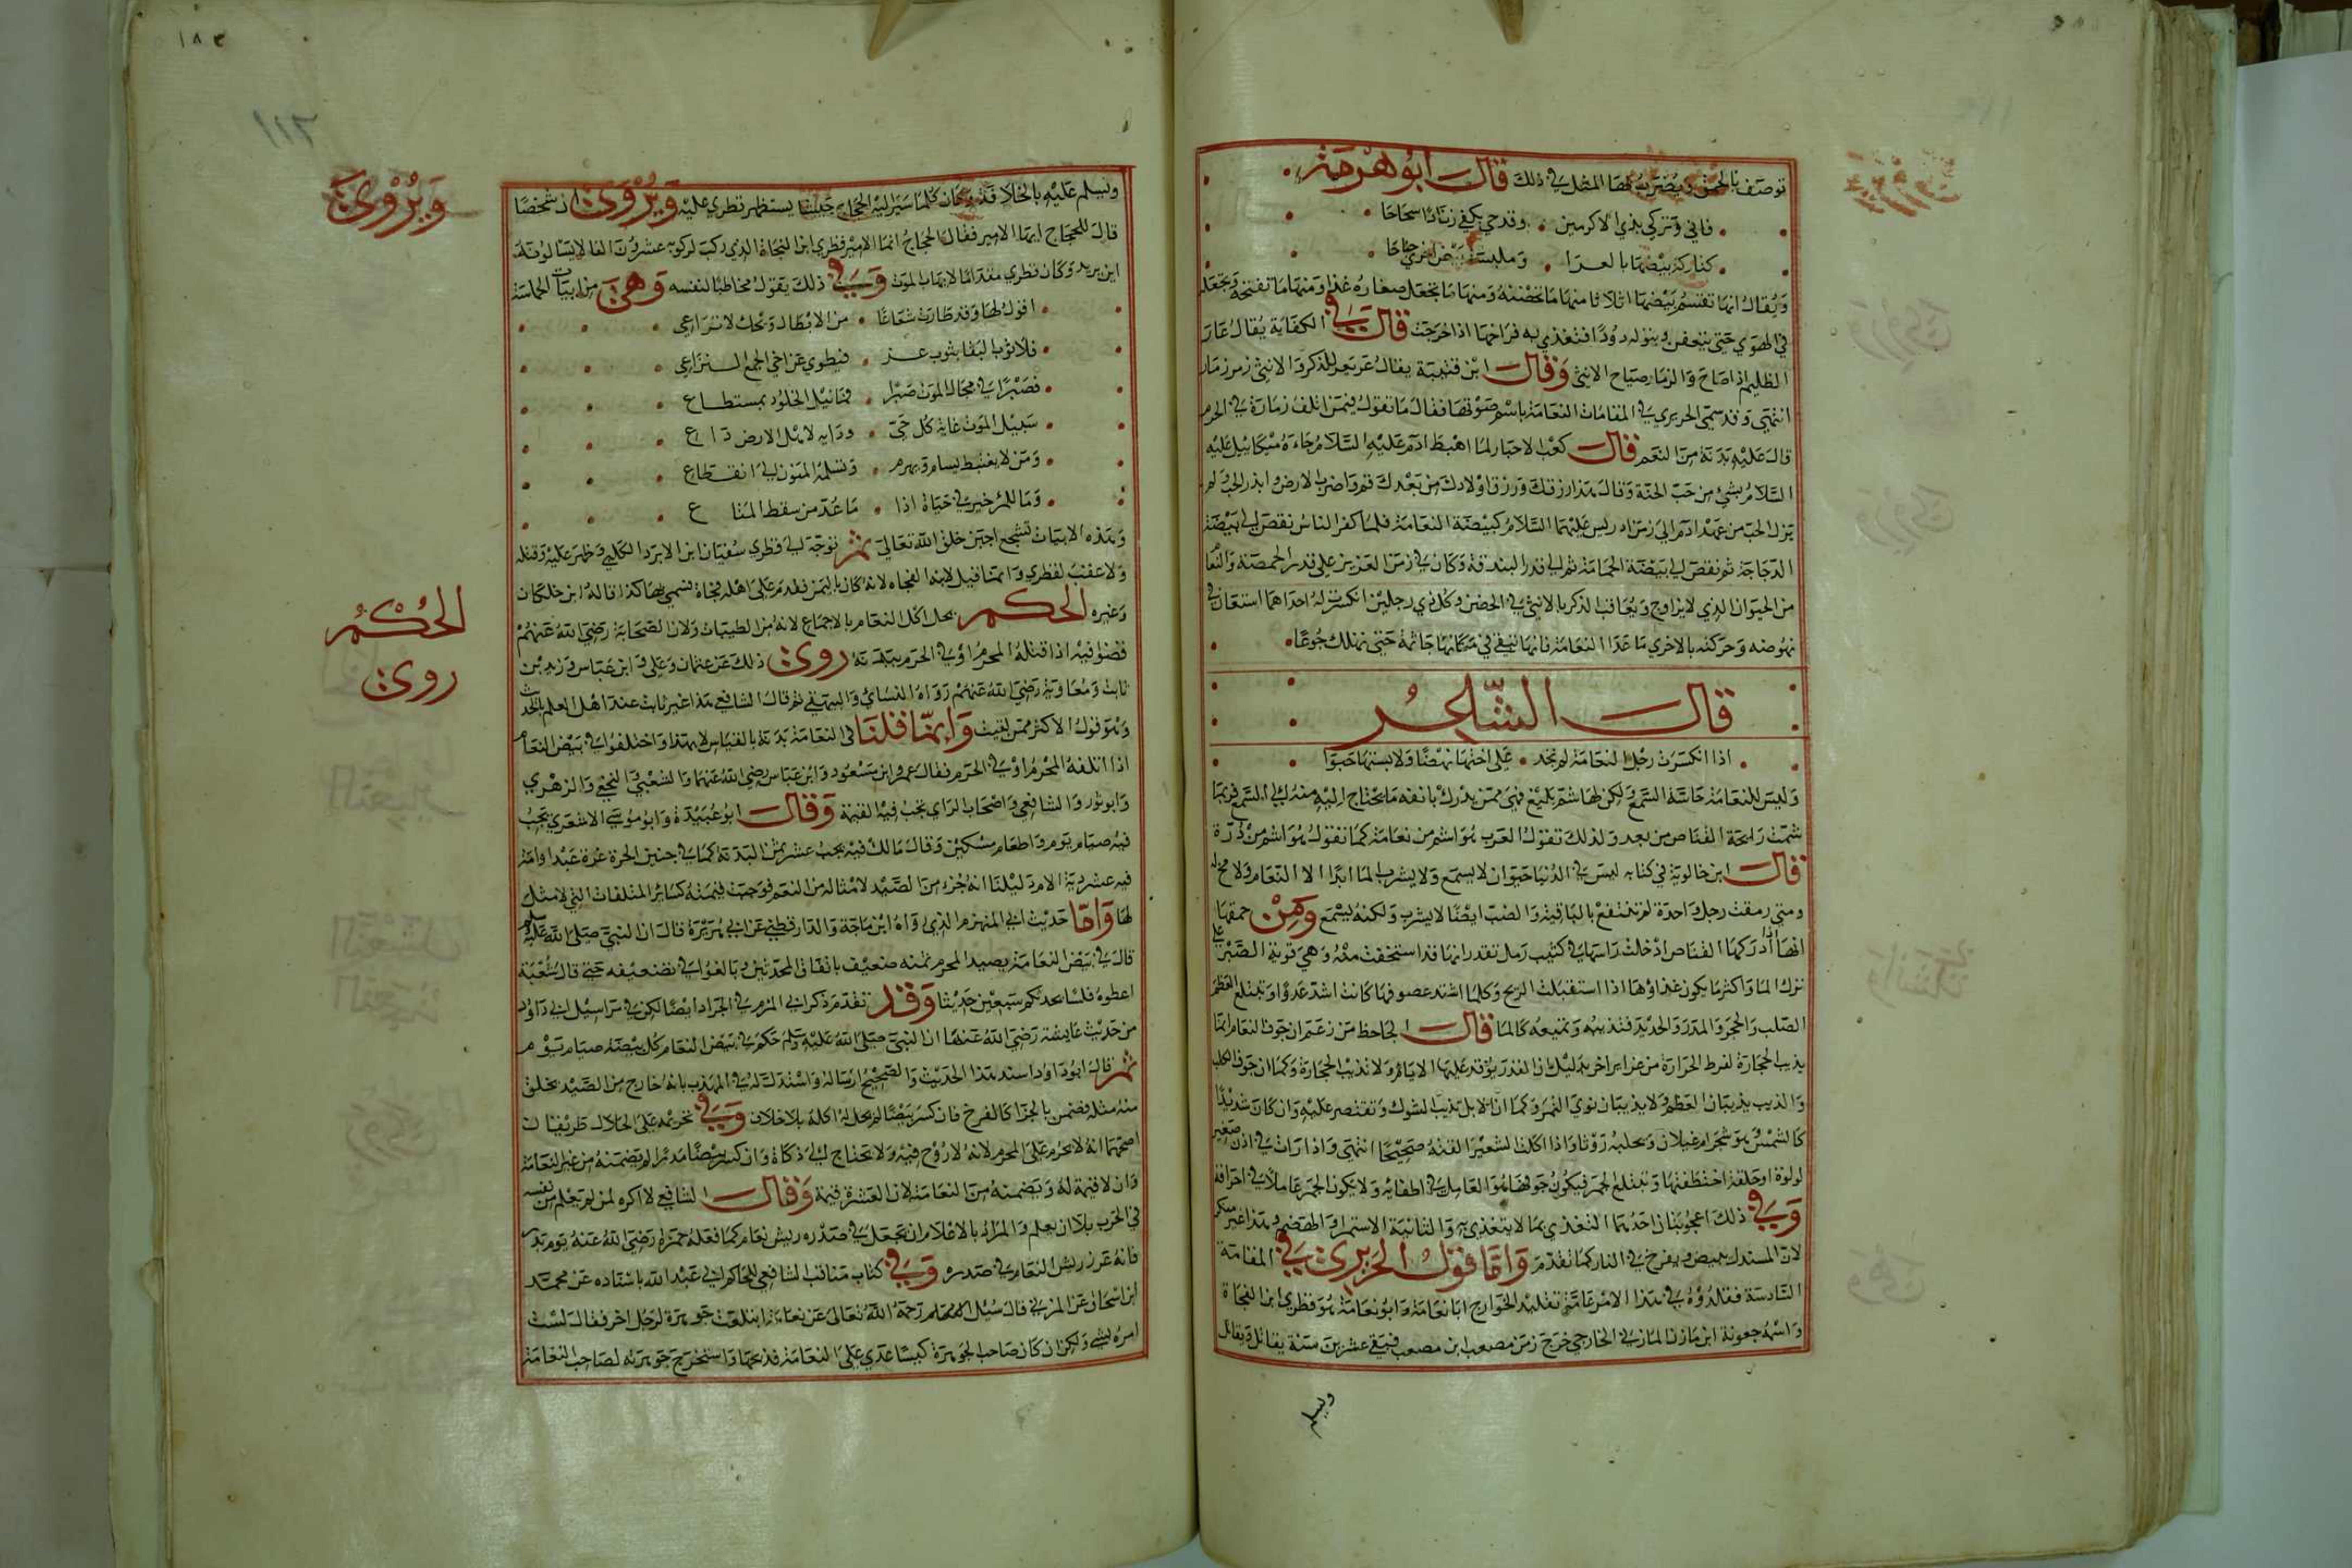 توصف بالحمق ويضرب بها المثل في ذلك قال ابو هرمة
فاني وتركي ندي الاكرمين وقدحي بكفي زنادا سحاحا
كتاركة بيضها بالعرا وملبسة بيض اخري جناحا
ويقال انها تقتسم بيضها اثلاثا منها ما تحضنه ومنها ما تجعل صفاره غذا ومنها ما تفتحه وتجعله
في الهوي حتي يتعفن ويتولد دودا فتغذي به فراخها اذا خرجت قال في الكفاية يقال عار
الظليم اذا صاح والزمار صياح الانثي وقال ابن قتيبة يقال عر يعر للذكر والانثي زمر زمار
انتهي وقد سمي الحريري في المقامات النعامة باسم صوتها فقال ما تقول فيمن اتلف زمارة في الحرم
قال عليه بدنة من النعم قال كعب الاحبار لما اهبط ادم عليه السلام جاءه ميكائيل عليه
السلام بشي من حب الحنة وقال هذا رزقك ورزق اولادك من بعدك قم واضرب الارض وابذر الحب ولم
يزل الحب من عهد ادم الي زمن ادريس عليهما السلام كبيضة النعامة فلما كفر الناس نقص الي بيضة
الدجاجة ثم نقص الي بيضة الحمامة ثم الي قدر البندقة وكان في زمن العزيز علي قدر الحمصة والنعا
من الحيوان الذي لا يزاوج ويعاقب الذكر بالانثي في الحضن وكل ذي رجلين انكسرت له احداهما استعان في
نهوضه وحركته بالاخري ما عدا النعامة فانها تبقي في مكانها جاثمة حتي تهلك جوعا
قال الشاعر
اذا انكسرت رجل النعامة لم تجد علي اختها نهضا ولا باستها حبوا
وليس للنعامة حاسة السمع ولكن لها شم بليغ فهي ممن يدرك بانفه ما يحتاج اليه منه الي السمع فربما
شمت رايحة القناص من بعد ولذلك تقول العرب هو اشم من نعامة كما تقول هو اشم من ذرة
قال ابن خالوية في كتابه ليس في الدنيا حيوان لا يسمع ولا يشرب الما ابدا الا النعام ولا مخ له
ومتي رمقت رجل واحدة لم تنتفع بالباقية والضب ايضا لا يشرب ولكنه يسمع ومن حمقها
انها اذا ادركها القناص ادخلت راسها في كثيب رمل تقدر انها قد استخفت منه وهي قوية الصبر علي
ترك الما واكثر ما يكون غذاؤها اذا استقبلت الريح وكلما اشتد عصوفها كانت اشد عدوا وتبتلع العظم
الصلب والحجر والمدر والحديد فتذيبه وتميعه كالما قال الجاحظ من زعم ان جوف النعام انما
يذيب الحجارة لفرط الحرارة
والذيب يذيبان العظم ولا يذيبان نوي التمر وكما ان الابل تذيب الشوك وتقتصر عليه وان كان شديدا
كالشمس هو شجر ام غيلان وتحلبه روثا واذا اكلت الشعير القته صحيحا انتهي واذا رات في اذن صغير
لولوة او حلقة اختطفتها وتبتلع الجمر فيكون جوفها هو العامل في اطفائه ولا يكون الجمر عاملا في احراقه
وفي ذلك اعجوبتان احدهما التغذي بما لا يتغذي به والثانية الاستمرا والهضم وهذا غير منكر
لان السمندل يبيض ويفرخ في النار كما تقدم واما قول الحريري في المقامة
السادسة فقلدوه في هذا الامر عامة تقليد الخوارج ابا نعامة وابو نعامة هو قطري ابن الفجاة
واسمه جعونة ابن مازن المازني الخارجي خرج زمن مصعب ابن مصعب فبقي عشرين سنة يقاتل ويقاتل
ويسلم
١١٢
ويسلم عليه بالخلافة وكان كلما سير اليه الحجاج جيشا يستظهر قطري عليه ويروي ان شخصا
قال للحجاج ايها الامير فقال الحجاج انما الامير قطري ابن الفجاة الذي ركب لركوبه عشرون الفا لا يسالونه
اين يريد وكان قطري مقداما لا يهاب الموت وفي ذلك يقول مخاطبا لنفسه وهي من ابيات الحماسة
اقول لها وقد طارت شعاعا من الابطال ويحك لا تراعي
فلا ثوب البقا بثوب عز فيطوي عن اخي الخنع اليراع
فصبرا في مجال الموت صبرا فما نيل الخلود بمستطاع
سبيل الموت غاية كل حي وداعيه لاهل الارض داع
ومن لا يغتبط يسام ويهرم وتسلمه المنون الي انقطاع
وما للمرء خير في حياة اذا ما عد من سقط المتاع
وهذه الابيات تشجع اجبن خلق الله تعالي ثم توجه الي قطري سفيان ابن الابرد الكلبي وظهر عليه وقتله
ولا عقب لقطري وانما قيل لابيه الفجاه لانه كان باليمن فقدم علي اهله فجاة فسمي بها كذا قاله ابن خلكان
وغيره الحكم يحل اكل النعام بالاجماع لانه من الطيبات ولان الصحابة رضي الله عنهم
قضوا فيه اذا قتله المحرم او في الحرم ببدنة روي ذلك عن عثمان وعلي وابن عباس وزيد بن
ثابت ومعاوية رضي الله عنهم رواه النسائي والبيهقي ثم قال الشافعي هذا غير ثابت عند اهل العلم بالحديث
وهو قول الاكثر ممن لقيت وانما قلنا في النعامة بدنة بالقياس لا بهذا واختلفوا في بيض النعام
اذا اتلفه المحرم او في الحرم فقال عمر وابن مسعود وابن عباس رضي الله عنهما والشعبي والنخعي والزهري
وابو ثور والشافعي واصحاب الراي يجب فيه القيمة وقال ابو عبيدة وابو موسي الاشعري يجب
فيه صيام يوم واطعام مسكين وقال مالك فيه يجب عشر ثمن البدنة كما في جنين الحرة غرة عبد او امة
فيه عشر دية الام دليلنا انه جزء من الصيد لا مثل له من النعم فوجبت قيمته كسائر المتلفات التي لا مثل
لها واما حديث ابي المهزم الذي رواه ابن ماجة والدارقطني عن ابي هريرة قال ان النبي صلي الله عليه وسلم
قال في بيض النعامة يصيبه المحرم ثمنه ضعيف باتفاق المحدثين وبالغوا في تضعيفه حتي قال شعبة
اعطوه فلسا يحدثكم سبعين حديثا وقد تقدم ذكر ابي المهزم في الجراد ايضا لكن في مراسيل ابي داؤد
من حديث عايشة رضي الله عنها ان النبي صلي الله عليه وسلم حكم في بيض النعام كل بيضة صيام يوم
ثم قال ابو داود اسند هذا الحديث والصحيح ارساله واستدل له في المهذب بانه خارج من الصيد يخلق
منه مثله فضمن بالجزا كالفرخ فان كسر بيضا لم يحل له اكله بلا خلاف وفي تحريمه علي الحلال طريقان
اصحهما انه لا يحرم علي المحرم لانه لا روح فيه ولا يحتاج الي ذكاة وان كسر بيضا مذرا لم يضمنه من غير النعامة
وان لا قيمة له ويضمنه من النعامة لان لقشره قيمة وقال الشافعي لا اكره لمن يعلم من نفسه
في الحرب بلا ان يعلم والمراد بالاعلام ان يجعل في صدره ريش نعام كما فعله حمزة رضي الله عنه يوم بدر
فانه غرز ريش النعام في صدره وفي كتاب مناقب الشافعي للحاكم ابي عبد الله باسناده عن محمد
ابن اسحاق عن المزني قال سئل الامام رحمه الله تعالي عن نعامة ابتلعت جوهرة لرجل اخر فقال لست
امره بشي ولكن ان كان صاحب الجوهرة كيسا عدي علي النعامة فذبحها واستخرج جوهرته لصاحب النعامة
ويروي
الحكم
روي